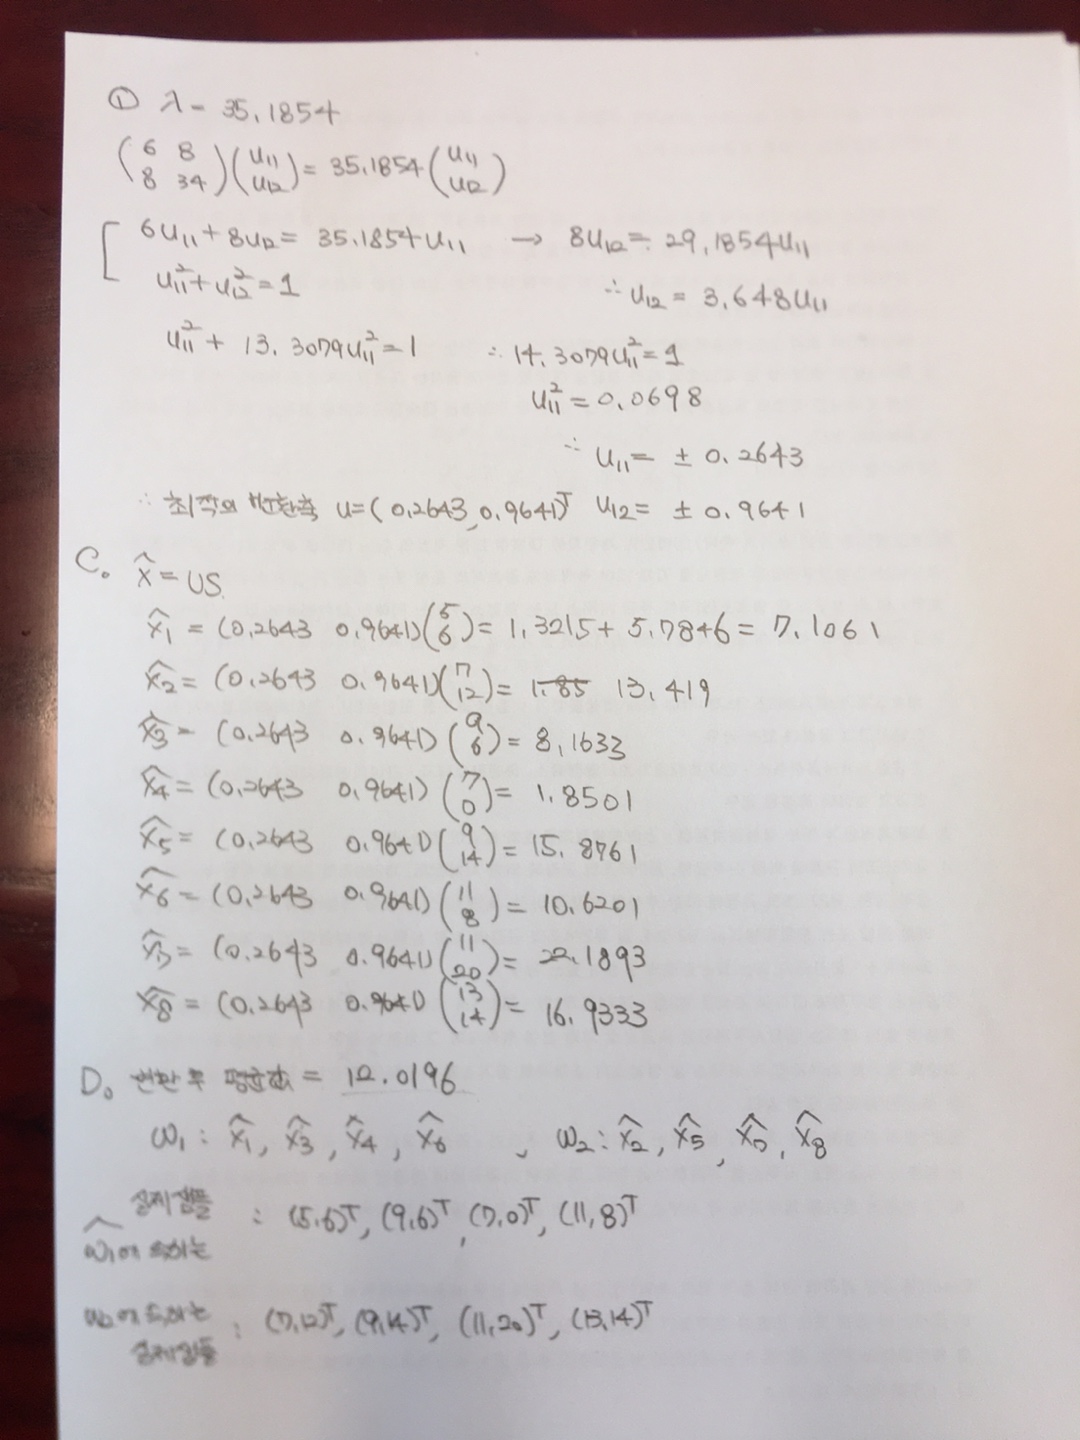 ① λ = 35.1854
(6 8 / 8 34)(u11 / u12) = 35.1854 (u11 / u12)
[ 6u11 + 8u12 = 35.1854u11 → 8u12 = 29.1854u11
u11² + u12² = 1 ∴ u12 = 3.648u11
u11² + 13.3079u11² = 1 ∴ 14.3079u11² = 1
u11² = 0.0698
∴ u11 = ± 0.2643
∴ 최적의 변환축 u = (0.2643, 0.9641)ᵀ u12 = ± 0.9641
C. x̂ = US
x̂1 = (0.2643 0.9641)(5 / 6) = 1.3215 + 5.7846 = 7.1061
x̂2 = (0.2643 0.9641)(7 / 12) = 1.85 13.419
x̂3 = (0.2643 0.9641)(9 / 6) = 8.1633
x̂4 = (0.2643 0.9641)(7 / 0) = 1.8501
x̂5 = (0.2643 0.9641)(9 / 14) = 15.8761
x̂6 = (0.2643 0.9641)(11 / 8) = 10.6201
x̂7 = (0.2643 0.9641)(11 / 20) = 22.1893
x̂8 = (0.2643 0.9641)(13 / 14) = 16.9333
D. 변환 후 평균값 = 12.0196
ω1 : x̂1, x̂3, x̂4, x̂6 , ω2 : x̂2, x̂5, x̂7, x̂8
실제샘플 : (5,6)ᵀ, (9,6)ᵀ, (7,0)ᵀ, (11,8)ᵀ
ω1에 속하는
ω2에 속하는 : (7,12)ᵀ, (9,14)ᵀ, (11,20)ᵀ, (13,14)ᵀ
실제샘플